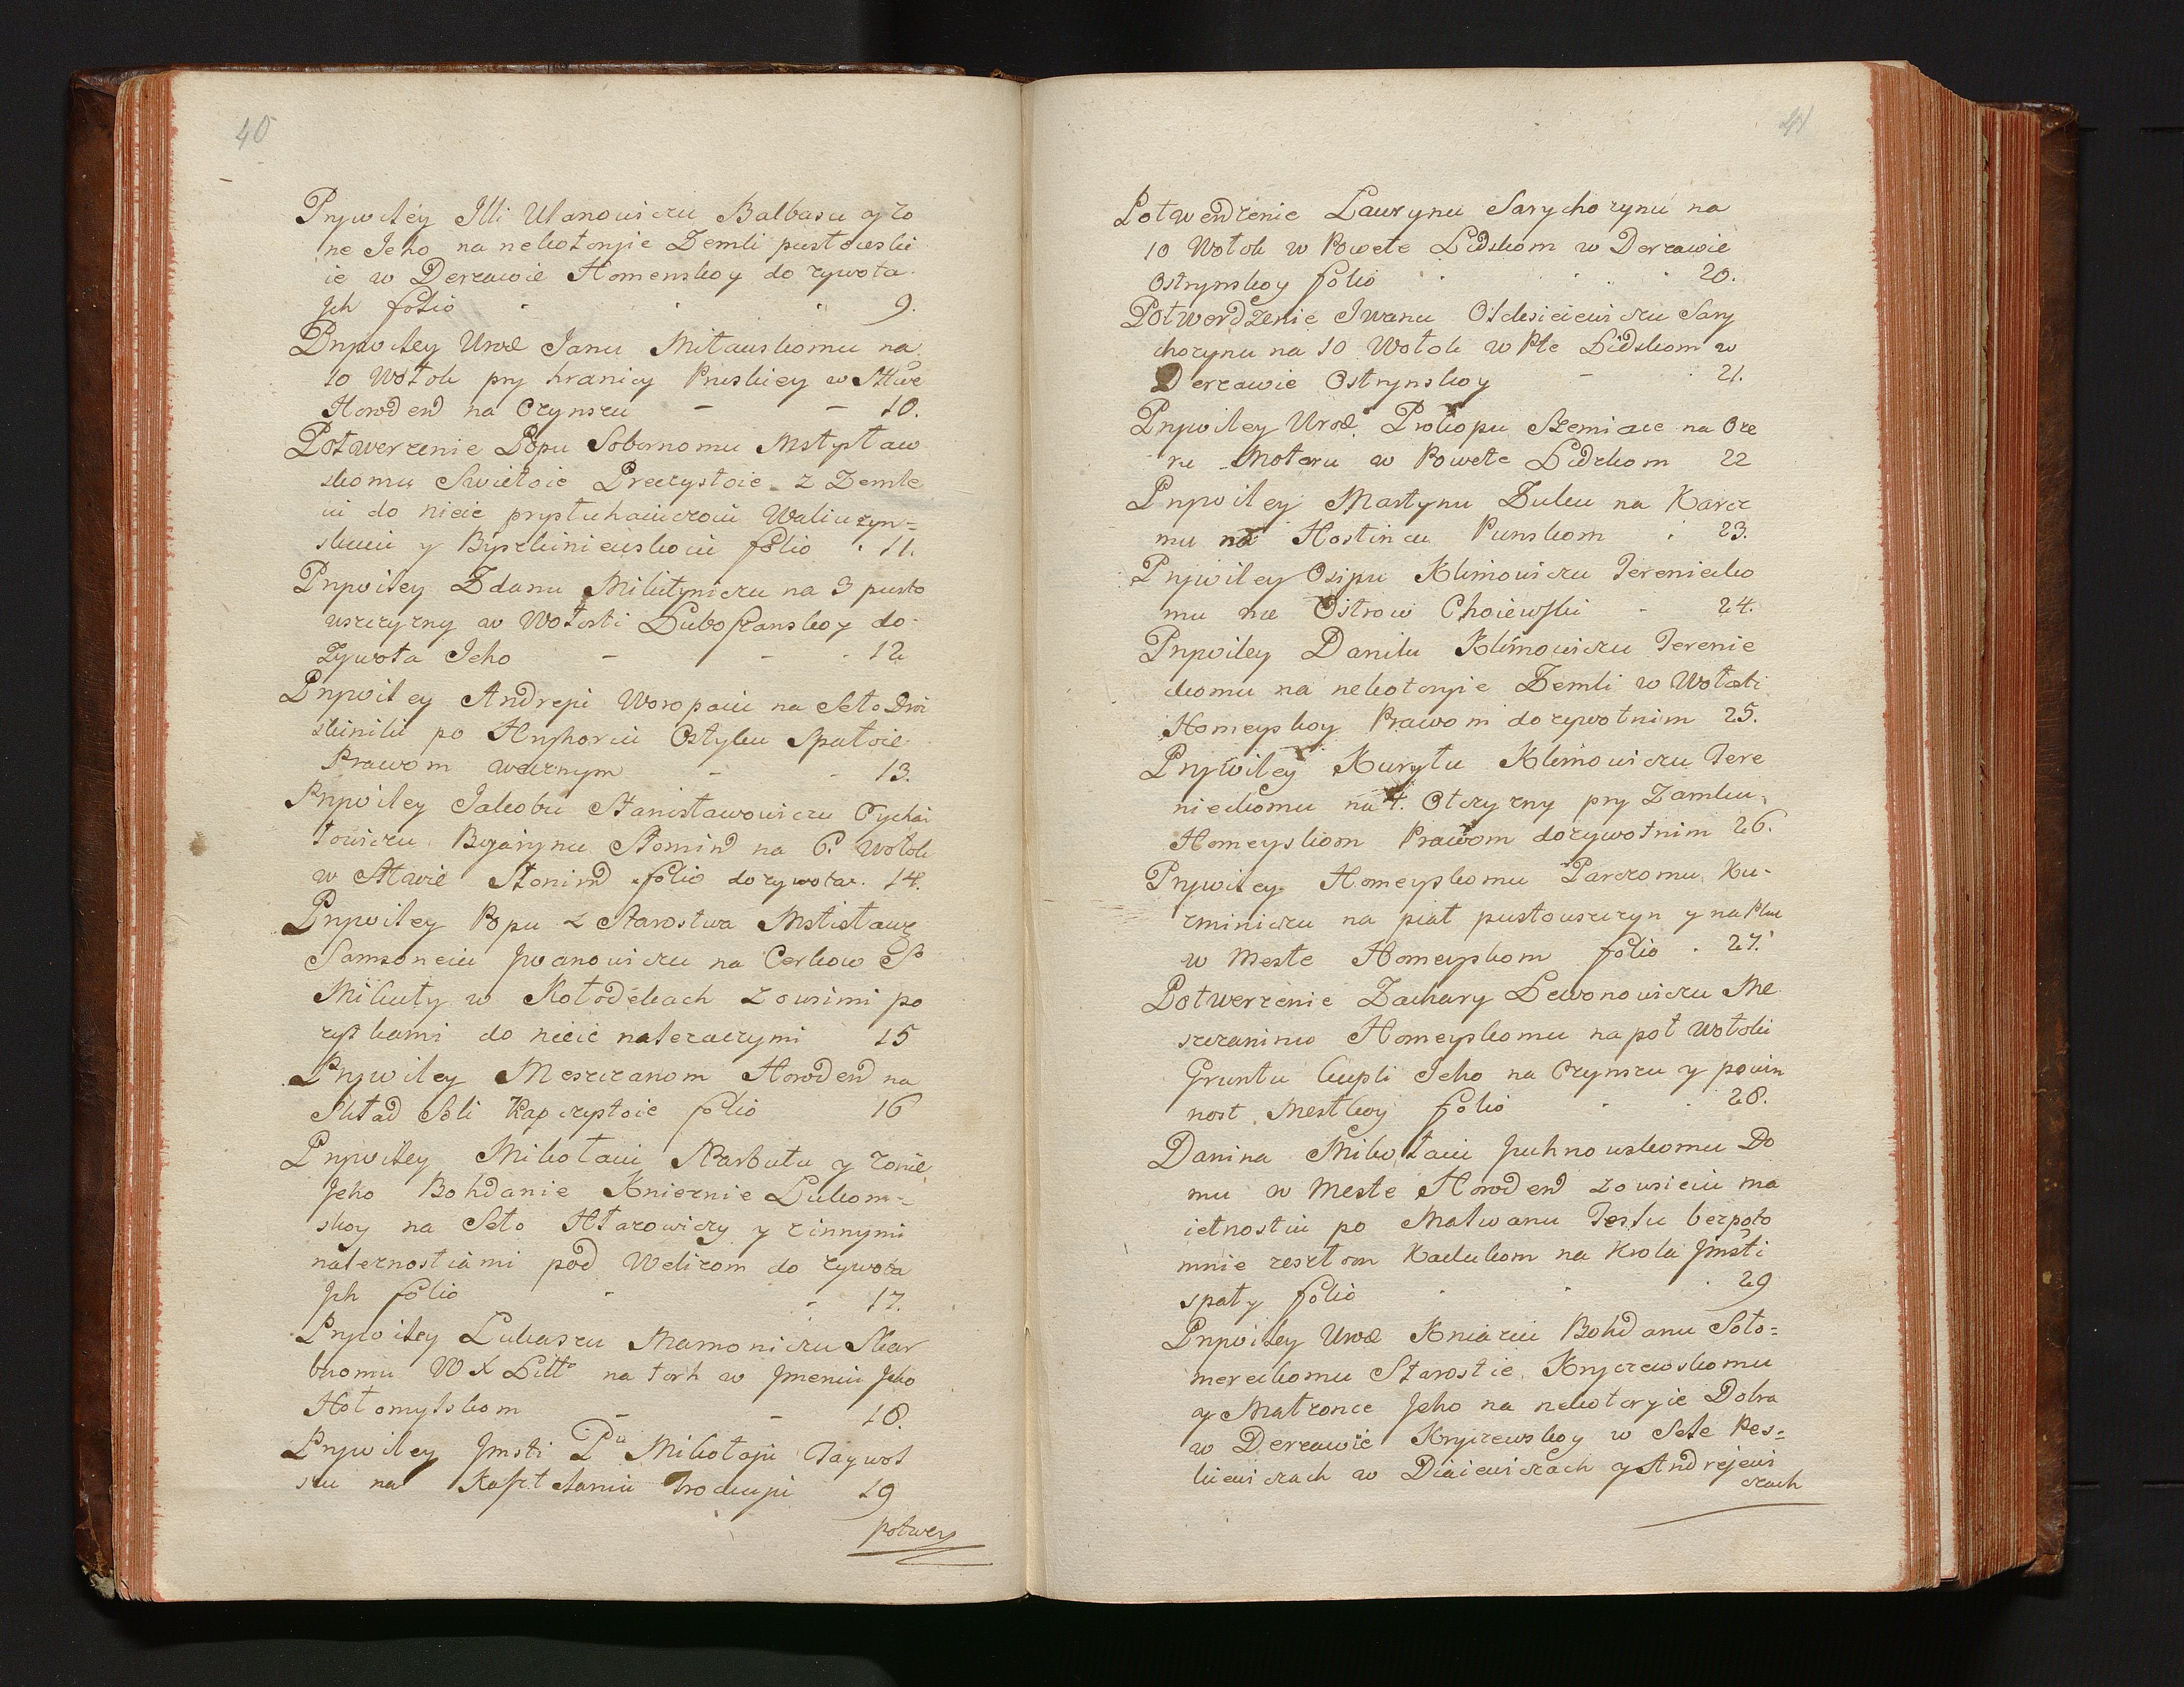 40
Prywiley Illi Ulanowiczu Balbasu y żo
ne Jeho na nekotoryie Zemli pustowski
ie w Derżawie Homenskoy do żywota
Jch folio 9.
Prywiley Uroż Janu Mitauskomu na
10 Wołok pry hranicy Pruskiey w Sttwe
Horoden na Czynszu 10.
Potwerżenie Popu Sobornomu Mstysław
skomu Swietoie Preczystoie z Zemle
iu do nieie prysłuhaiuczoiu
skuiu y folio 11.
Prywiley Zdanu Mikityniczu na 3 pusto
wszczyzny w Wołosti Luboszanskoy do
Zywota Jeho 12
Prywiley Andreju Woropaiu na Seło Dwi
skiniki po Hryhoriu Ostyku Spałoie
Prawom wecznym 13.
Prywiley Jakobu Stanisławowiczu Pychai
łowiczu Bojarynu Słonim na 6. Wołok
w Sttwie Słonimd folio do żywota. 14.
Prywiley Popu z Starostwa Mstisław
Samsoneiu Jwanowiczu na Cerkow So
Mikuły w Kołodekach z owsimi po
żytkami do nieie należaczymi 15
Prywiley Meszczanom Horoden na
Skład Soli Kapczystoie folio 16
Prywiley Mikołaiu Narbutu y żonie
Jeho Bohdanie Knieżnie Lukom-
skoy na Seło Hłazowiczy y z innymi
należnostiami pod Weliżom do żywota
Jch folio 17.
Prywiley Lukaszu Mamoniczu Skar
bnomu W X Litto na torh w Jmeniu Jeho
Hołomyslskom 18.
Prywiley Jmsti Pu Mikołaju Taywos
szu na Kasztelaniu Trockuju 19
potwerz
41
Potwerdżenie Laurynu Sarychożynu na
10 Wołok w Powete Lidskom w Derżawie
Ostrynskoy folio 20.
Potwordzenie Jwanu Oleksieiewiczu Sary
chożynu na 10 Wołok w Pte Lidskom w
Derżawie Ostrynskoy 21.
Prywiley Uroż Prokopu Szemiace na Oze
ru Motoru w Powete Lidzkom 22
Prywiley Martynu Żuku na Karcz
mu na Hostincu Punskom 23.
Prywiley Osipu Klimowiczu Tereniecko
mu na Ostrow Choiewski 24.
Prywiley Danilu Klimowiczu Terenie
ckomu na nekotoryie Zemli w Wołosti
Homeyskoy Prawom dożywotnim 25.
Prywiley Kuryłu Klimowiczu Tere
nieckomu na 4. Otczyzny pry Zamku
Homeyskom Prawom dożywotnim 26.
Prywiley Homeyskomu Parczomu Ku-
zminiczu na piat pustowszczyn y na Plac
w Meste Homeyskom folio 27.
Potwerżenie Zachary Lewonowiczu Me
szczaninu Homeyskomu na poł Wołoki
Gruntu kupli Jeho na Czynszu y powin
nost Mestkoy folio 28.
Danina Mikołaiu Juchnowskomu Do
mu w Meste Horoden zowsieiu ma
ietnostiu po Matwanu Teslu bezpoto
mnie zeszłom Kadukom na Krola Jmsti
spały folio 29
Prywiley Uroż Kniaziu Bohdanu Soło=
mereckomu Starostie Kryczewskomu
y Małżonce Jeho na nekotoryie Dobra
w Derżawie Kryczewskoy w Sele Pes=
kiewiczach w Diaiewiczach y Andrejewi
czach